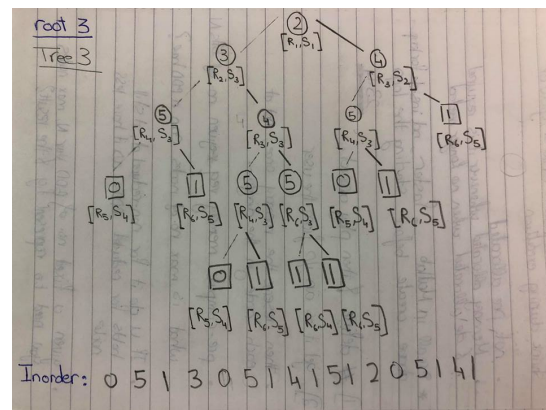 root 3
Tree 3
2
[R1, S1]
3
[R2, S3]
4
[R3, S2]
5
[R4, S3]
4
[R3, S3]
5
[R4, S3]
1
[R6, S5]
0
[R5, S4]
1
[R6, S5]
5
[R4, S3]
5
[R6, S3]
0
[R5, S4]
1
[R6, S5]
0
[R5, S4]
1
[R6, S5]
1
[R6, S4]
1
[R6, S5]
Inorder: 0 5 1 3 0 5 1 4 1 5 1 2 0 5 1 4 1